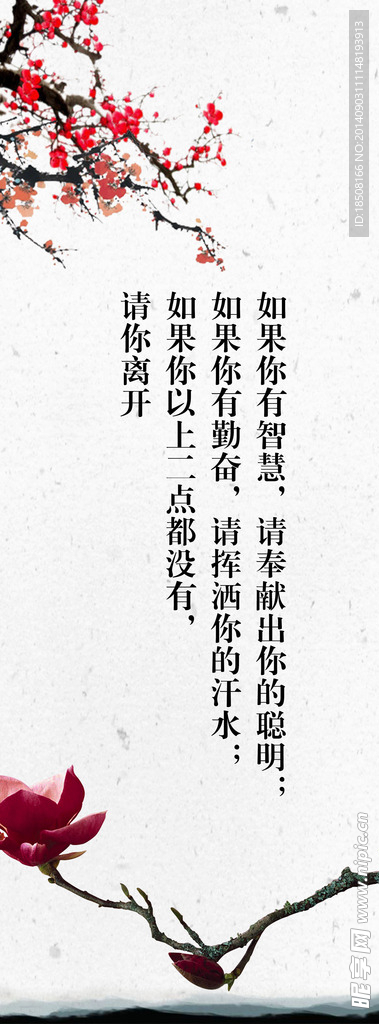 如果你有智慧，请奉献出你的聪明；
如果你有勤奋，请挥洒你的汗水；
如果你以上二点都没有，
请你离开
ID:18508166 NO:20140903111148193913
昵享网 www.nipic.cn